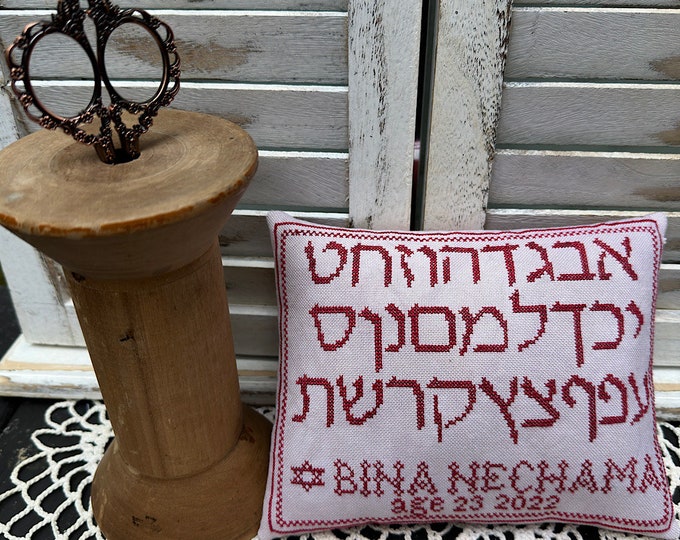 אבגדהוזחט
יכךלמםנןס
עפףצץקרשת
✡ BINA NECHAMA
age 23 2022